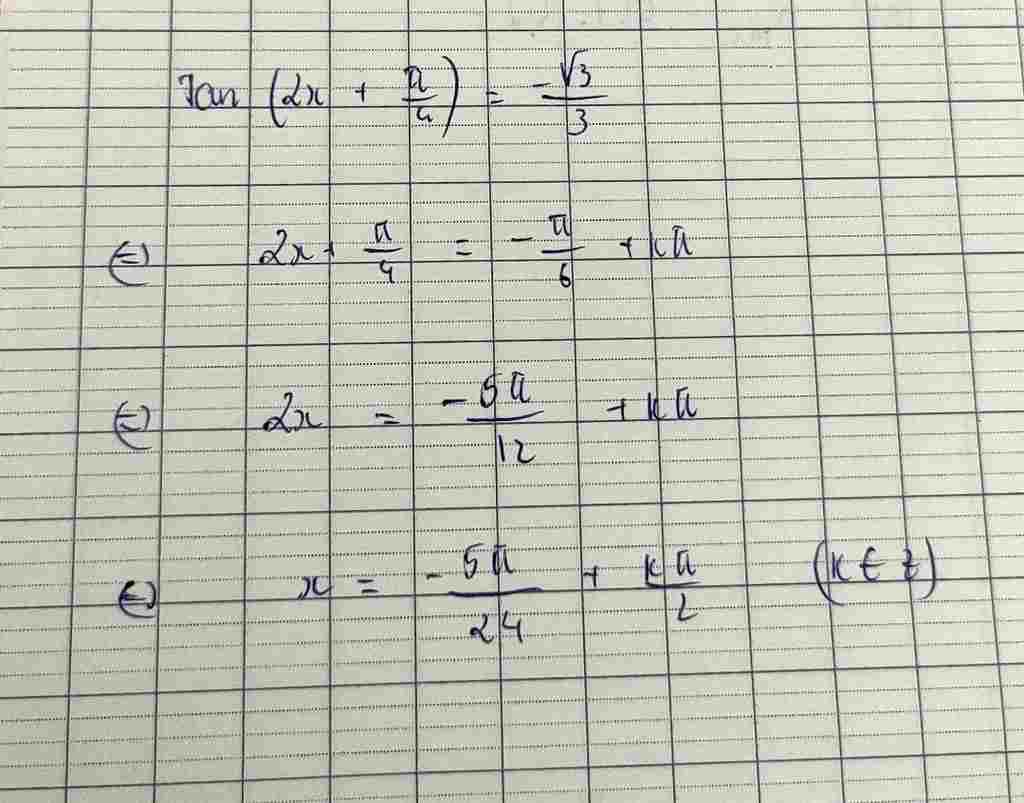 Tan (2x + π/4) = -√3/3
⇔ 2x + π/4 = -π/6 + kπ
⇔ 2x = -5π/12 + kπ
⇔ x = -5π/24 + kπ/2 (k ∈ Z)